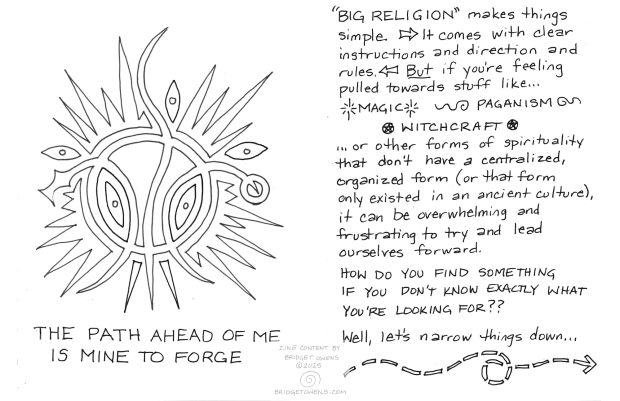 THE PATH AHEAD OF ME
IS MINE TO FORGE
"BIG RELIGION" makes things
simple. ⇨ It comes with clear
instructions and direction and
rules. ⇦ But if you're feeling
pulled towards stuff like...
MAGIC PAGANISM
WITCHCRAFT
... or other forms of spirituality
that don't have a centralized,
organized form (or that form
only existed in an ancient culture),
it can be overwhelming and
frustrating to try and lead
ourselves forward.
HOW DO YOU FIND SOMETHING
IF YOU DON'T KNOW EXACTLY WHAT
YOU'RE LOOKING FOR??
Well, let's narrow things down...
ZINE CONTENT BY
BRIDGET OWENS
©2025
BRIDGETOWENS.COM